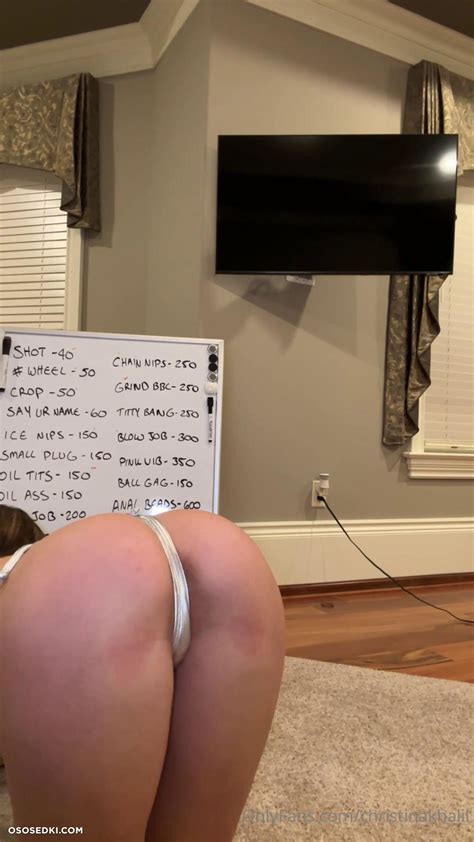 SHOT - 40
# WHEEL - 50
CROP - 50
SAY UR NAME - 60
ICE NIPS - 150
SMALL PLUG - 150
OIL TITS - 150
OIL ASS - 150
JOB - 200
CHAIN NIPS - 250
GRIND BBC - 250
TITTY BANG - 250
BLOW JOB - 300
PINK VIB - 350
BALL GAG - 150
ANAL BEADS - 600
OnlyFans.com/christinakhalil
OSOSEDKI.COM